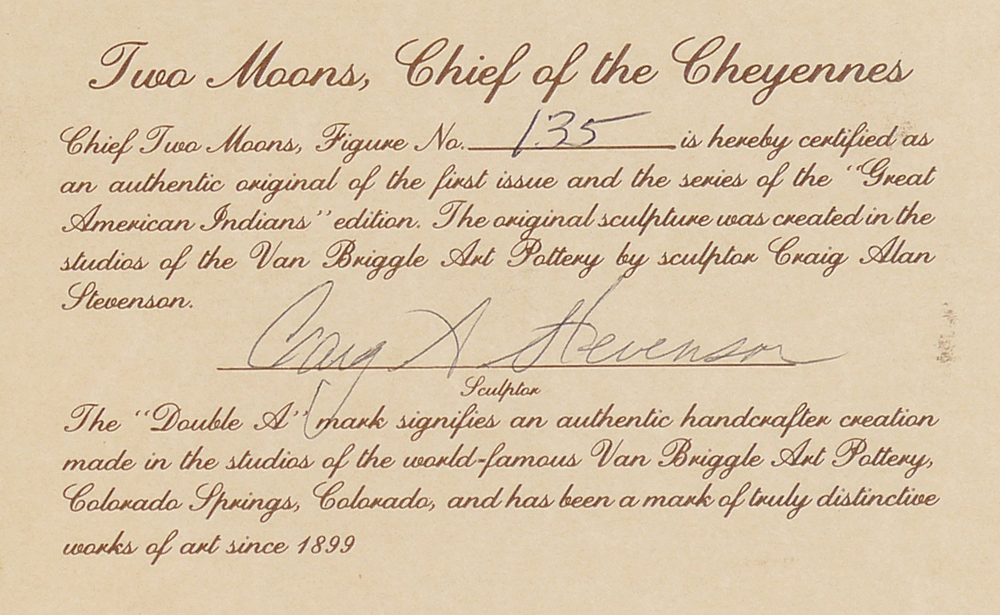 Two Moons, Chief of the Cheyennes
Chief Two Moons, Figure No. 135 is hereby certified as
an authentic original of the first issue and the series of the "Great
American Indians" edition. The original sculpture was created in the
studios of the Van Briggle Art Pottery by sculptor Craig Alan
Stevenson.
Craig A Stevenson
Sculptor
The "Double A" mark signifies an authentic handcrafter creation
made in the studios of the world-famous Van Briggle Art Pottery,
Colorado Springs, Colorado, and has been a mark of truly distinctive
works of art since 1899